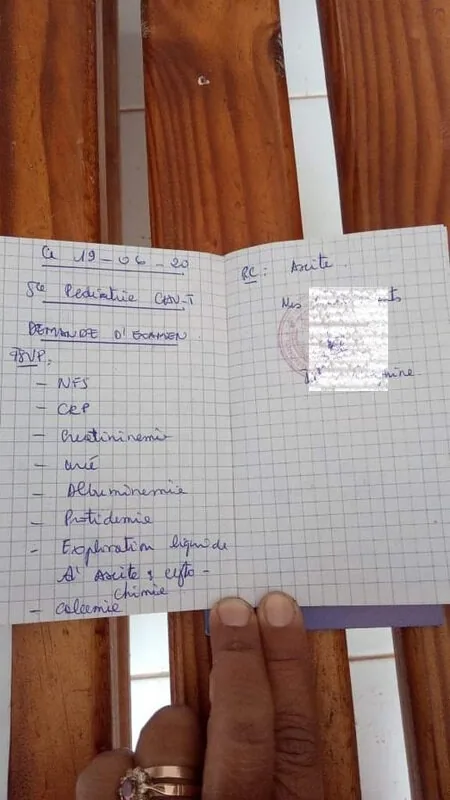 Ce 19-06-20
Sce Pédiatrie CHU-T
DEMANDE D'EXAMEN
PSVP:
- NFS
- CRP
- Creatininemie
- urée
- Albuminemie
- Protidemie
- Exploration liquide
d'Ascite: cyto-
chimie
- calcemie
RC: Ascite.
Mes